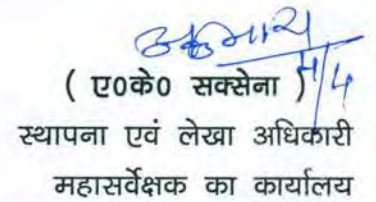 4/4
( ए0के0 सक्सेना )
स्थापना एवं लेखा अधिकारी
महासर्वेक्षक का कार्यालय